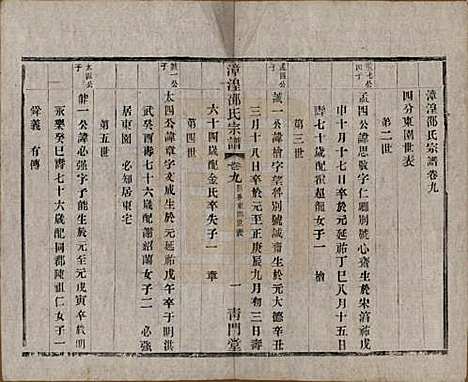 漳湟邵氏宗譜卷九
四分東園世表
第二世
孟四公諱思敬字仁卿別號心齋生於宋淳祐戊
申十月十七日卒於元延祐丁巳八月十五日
壽七十歲配祖龍女子一 檜
第三世
誠一公諱檜字望得別號誠齋生於元大德辛丑
三月十八日卒於元至正庚辰九月初三日壽
六十四歲配金氏卒失子一 章
漳湟邵氏宗譜
卷九
一
青門堂
第四世
太四公諱章字文成生於元延祐戊午卒於明洪
武癸酉壽七十六歲配謝紹蘭女子二 必強
居東園 必知居東宅
第五世
健一公諱必強字子能生於至元戊寅卒於明
永樂癸巳壽七十六歲配同都陳祖仁女子一
舜義 有傳